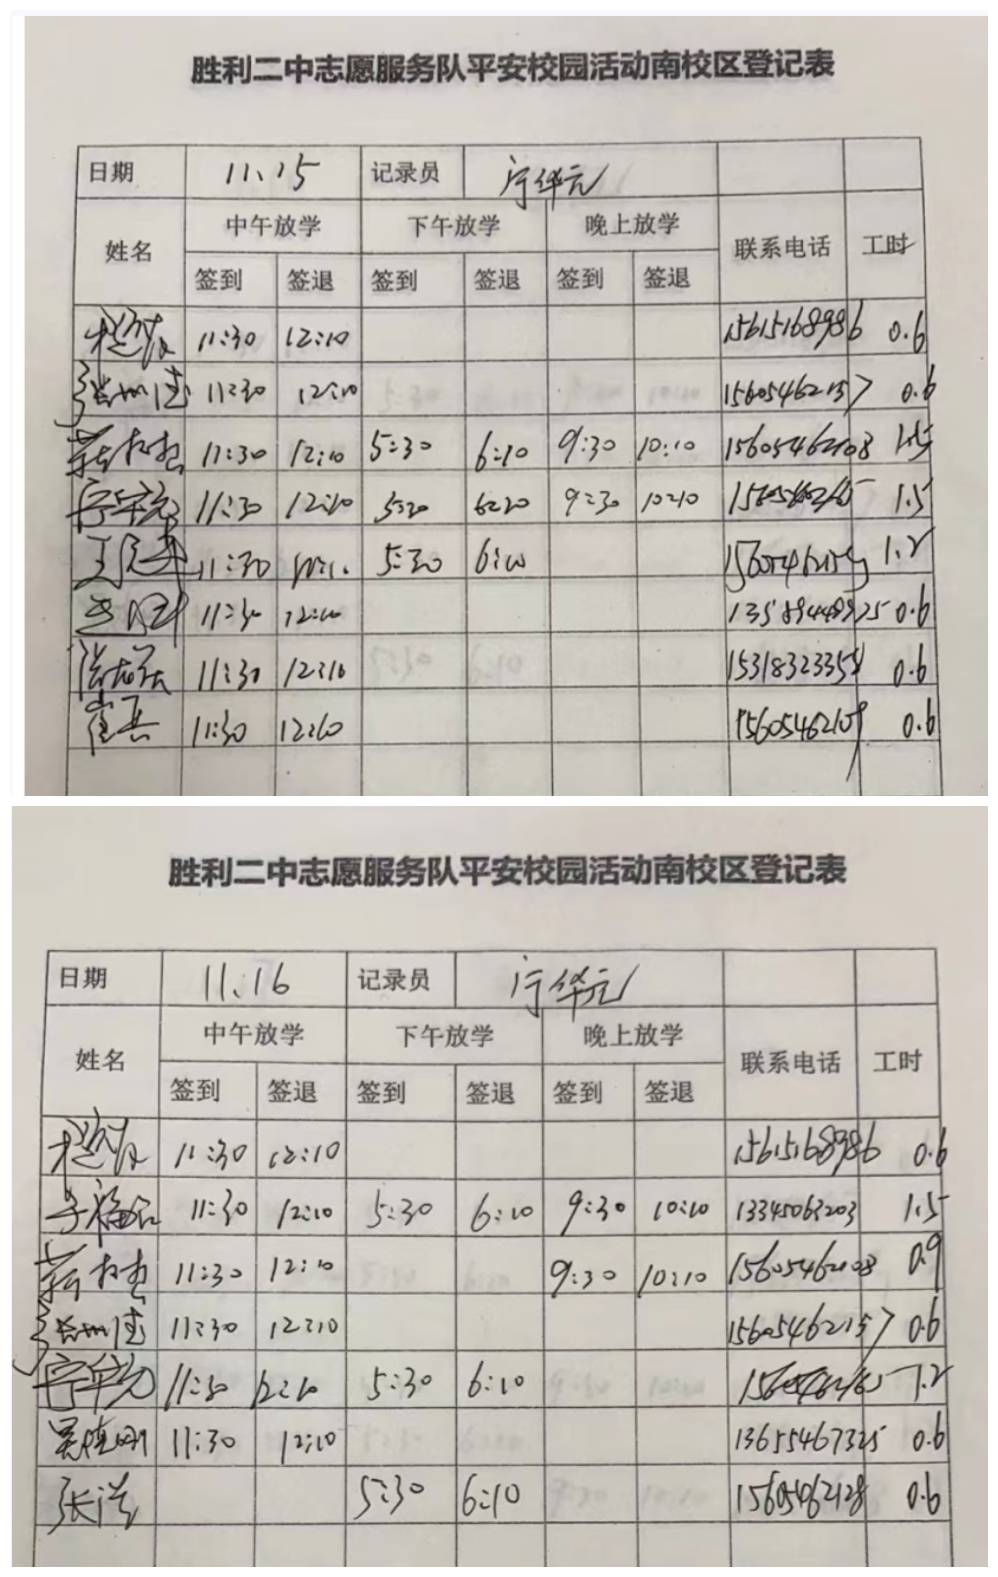 胜利二中志愿服务队平安校园活动南校区登记表
日期 11.15 记录员 宁华元
姓名 中午放学 下午放学 晚上放学 联系电话 工时
签到 签退 签到 签退 签到 签退
11:30 12:10 15615168986 0.6
11:30 12:10 15605462157 0.6
11:30 12:10 5:30 6:10 9:30 10:10 15605462103 1.5
宁华元 11:30 12:10 5:30 6:10 9:30 10:10 15605462165 1.5
11:30 5:30 6:10 1.2
11:30 12:10 0.6
11:30 12:10 0.6
崔兵 11:30 12:10 15605462109 0.6
胜利二中志愿服务队平安校园活动南校区登记表
日期 11.16 记录员 宁华元
姓名 中午放学 下午放学 晚上放学 联系电话 工时
签到 签退 签到 签退 签到 签退
11:30 12:10 15615168986 0.6
11:30 12:10 5:30 6:10 9:30 10:10 13345063203 1.5
11:30 12:10 9:30 10:10 15605462103 0.9
11:30 12:10 15605462157 0.6
宁华元 11:30 12:10 5:30 6:10 15605462165 1.2
11:30 12:10 13655467325 0.6
张洪 5:30 6:10 15605462128 0.6